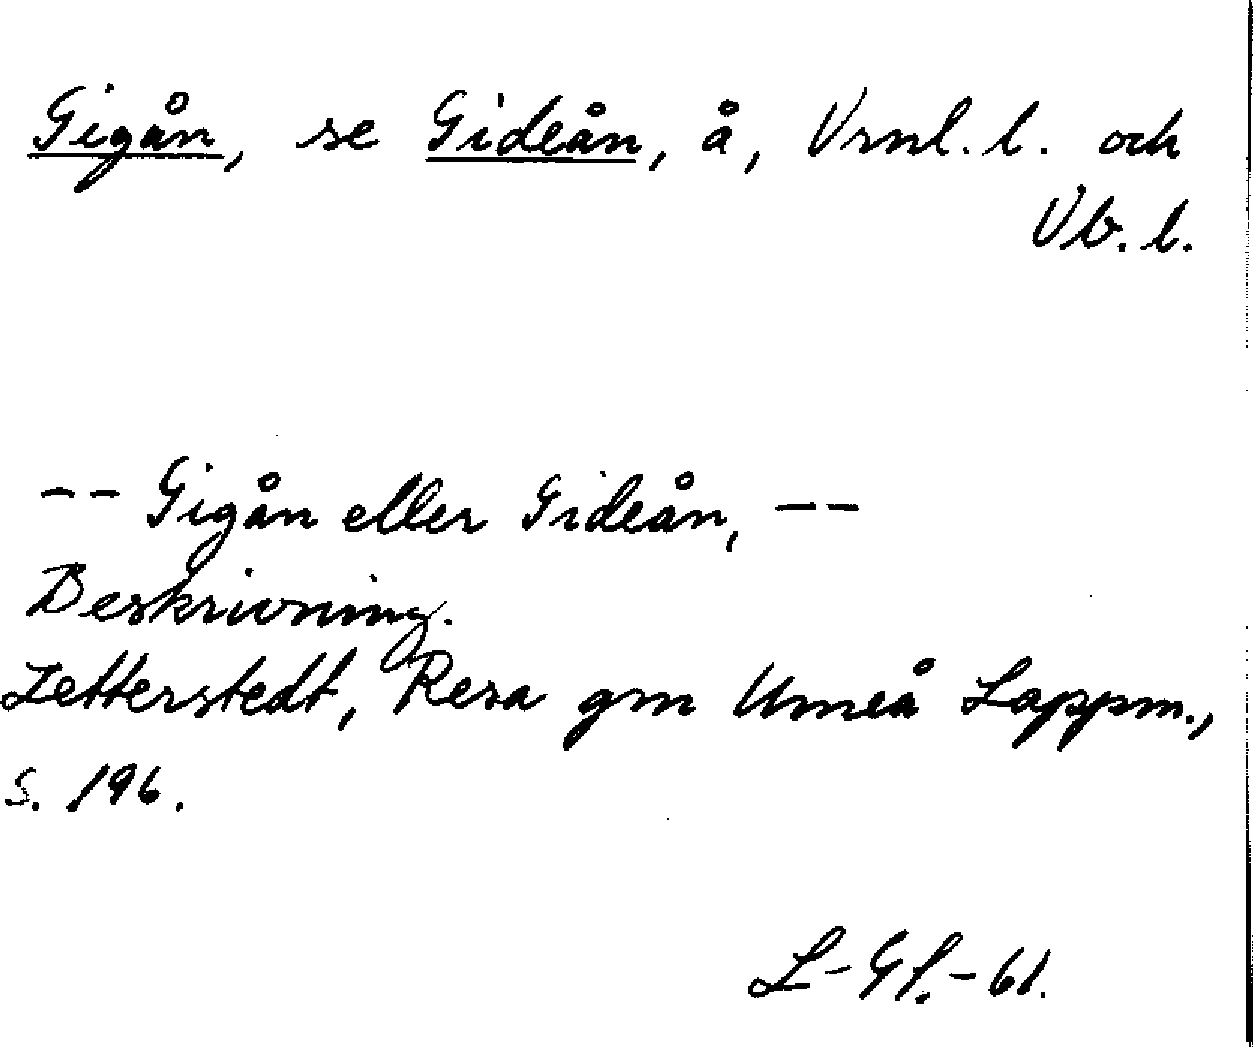 Gigån, se Gideån, å, Vrnl. l. och
Vb. l.
-- Gigån eller Gideån, --
Beskrivning.
Zetterstedt, Resa gm Umeå Lappm.,
s. 196.
L-Gf.-61.